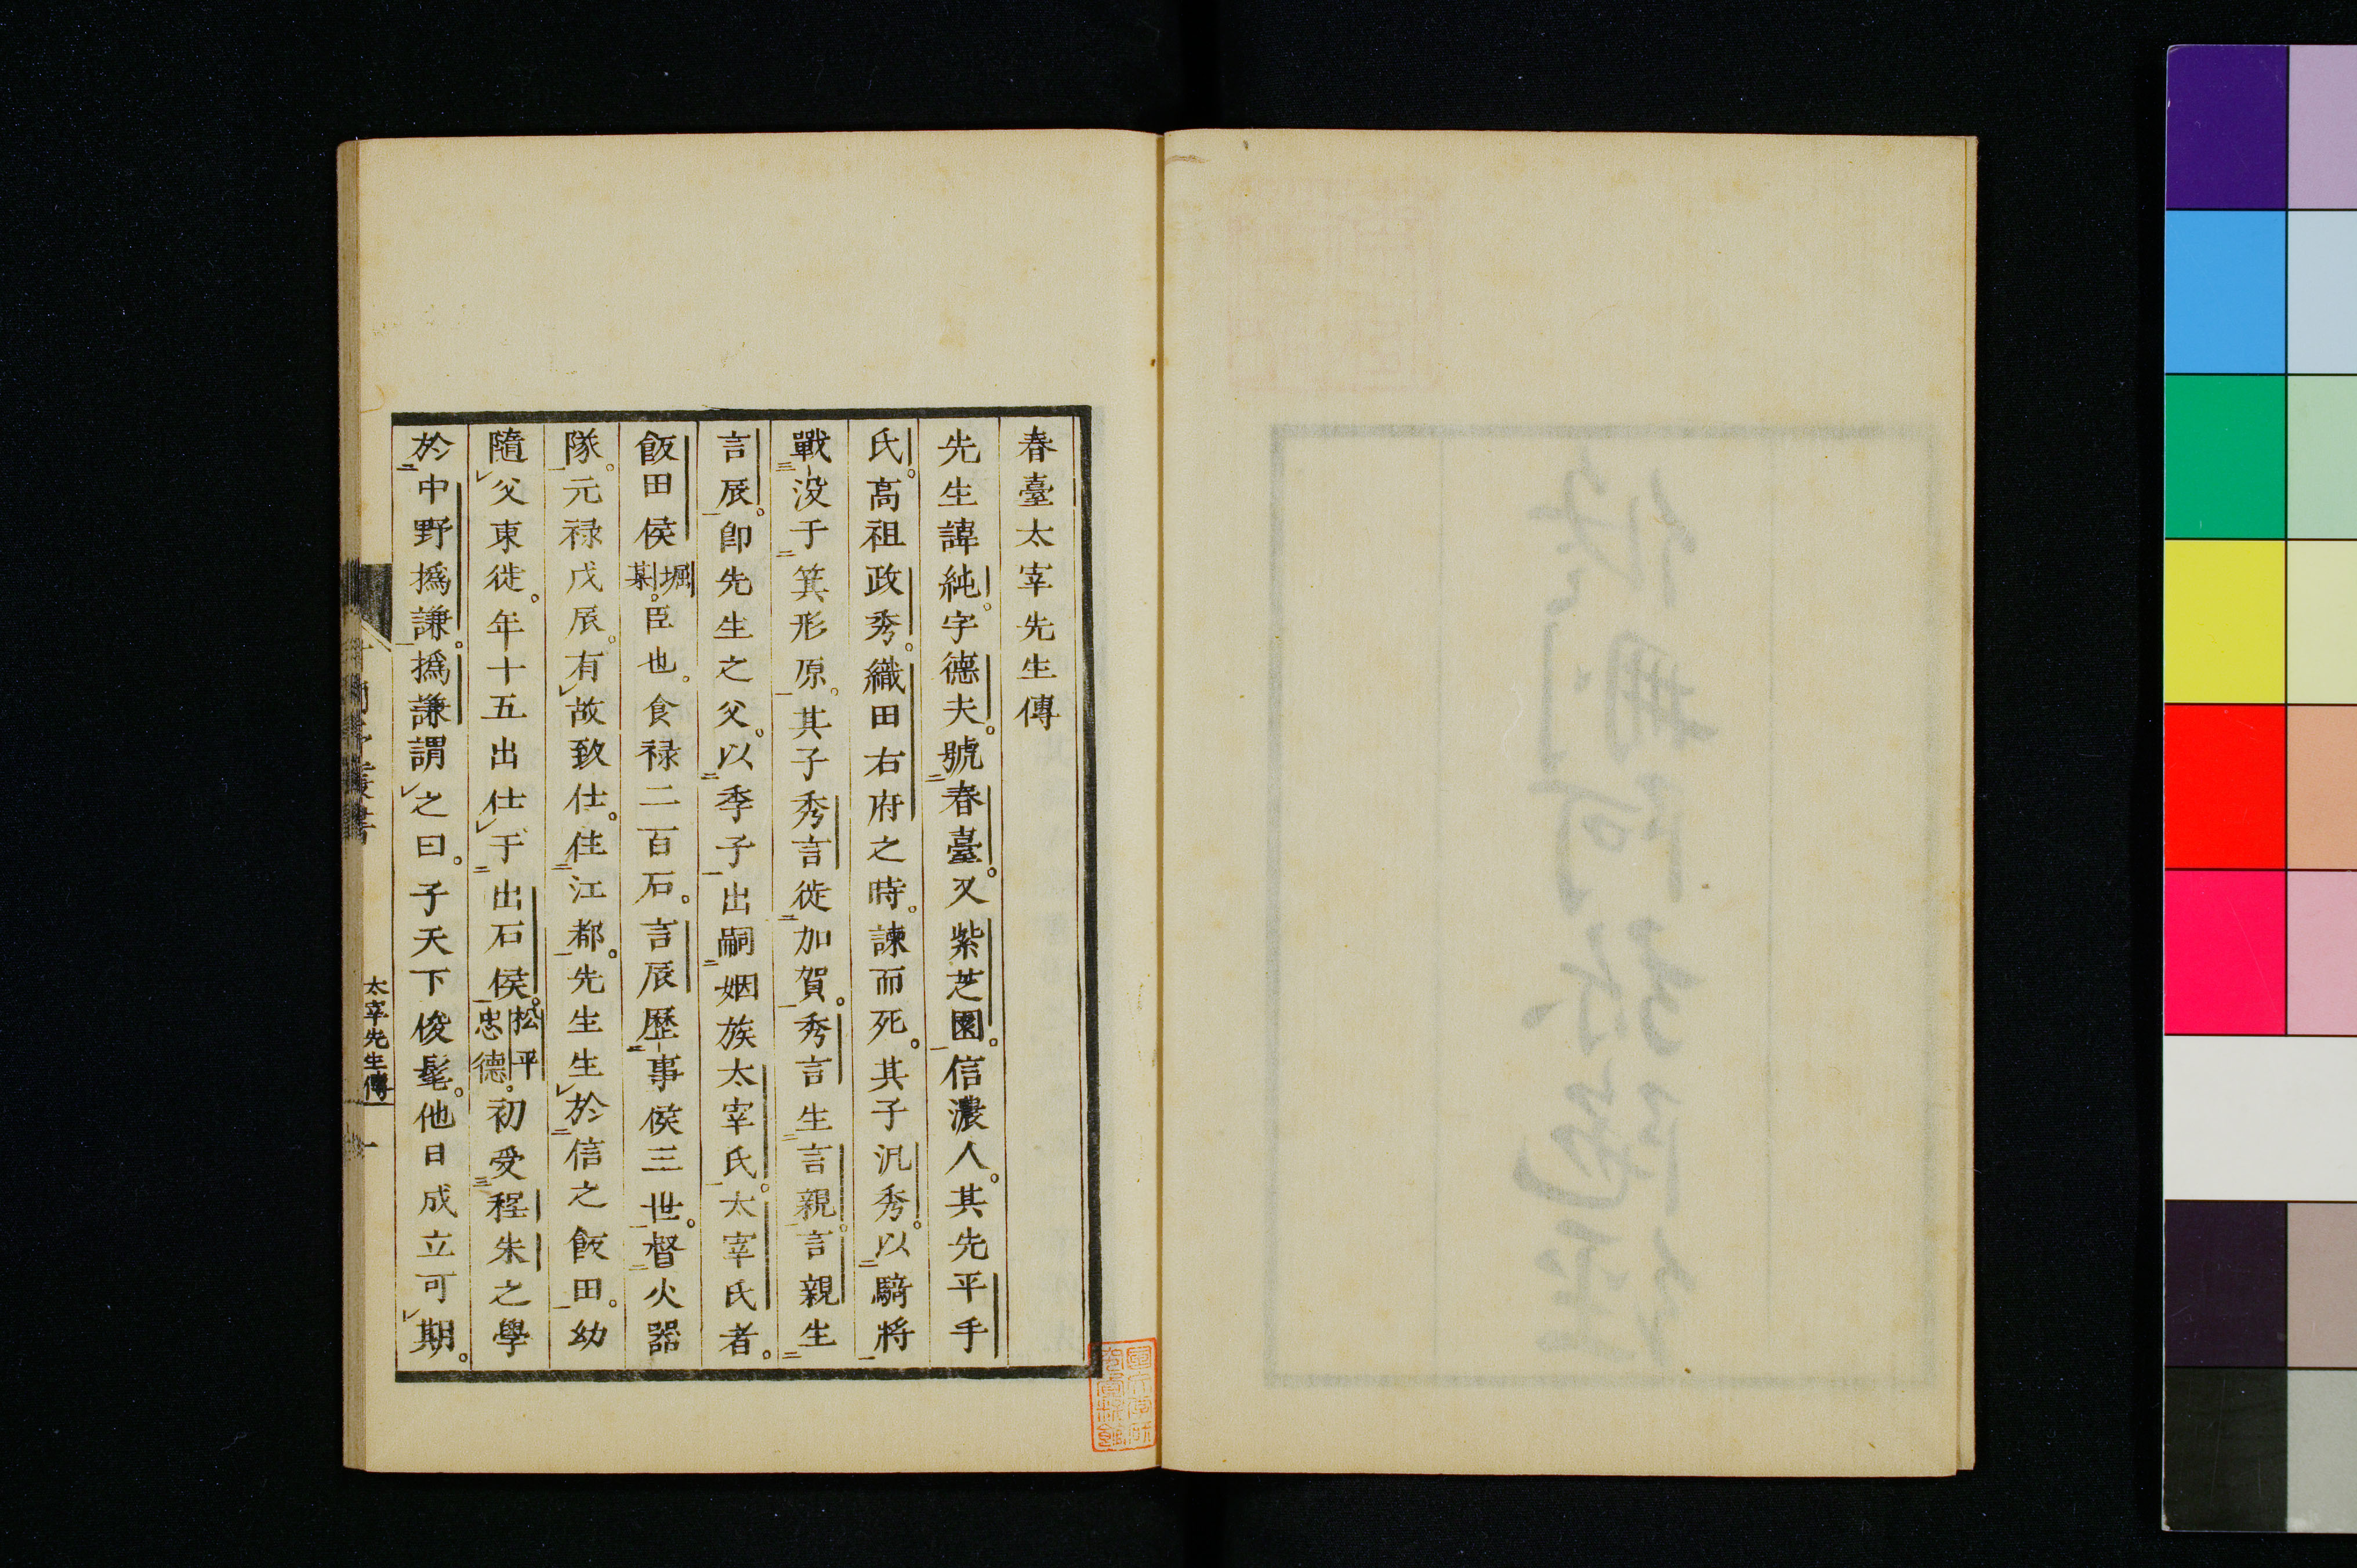 春臺太宰先生傳
先生諱純。字德夫。號春臺。又紫芝園。信濃人。其先平手
氏。高祖政秀。織田右府之時。諫而死。其子汎秀。以騎將
戰没于箕形原。其子秀言徙加賀。秀言生言親。言親生
言辰。卽先生之父。以季子出嗣姻族太宰氏。太宰氏者。
飯田侯堀某。臣也。食禄二百石。言辰歷事侯三世。督火器
隊。元禄戊辰。有故致仕。住江都。先生生於信之飯田。幼
隨父東徙。年十五出仕于出石侯。松平忠德。初受程朱之學
於中野撝謙。撝謙謂之曰。子天下俊髦。他日成立可期。
太宰先生傳
一